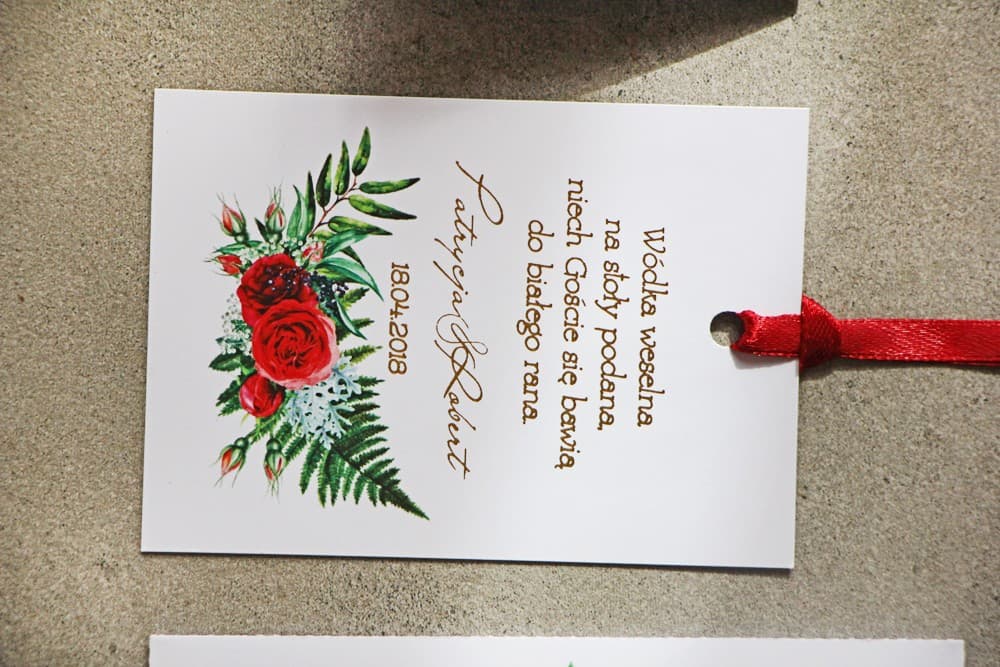 Wódka weselna
na stoły podana,
niech Goście się bawią
do białego rana.
Patrycja&Robert
18.04.2018